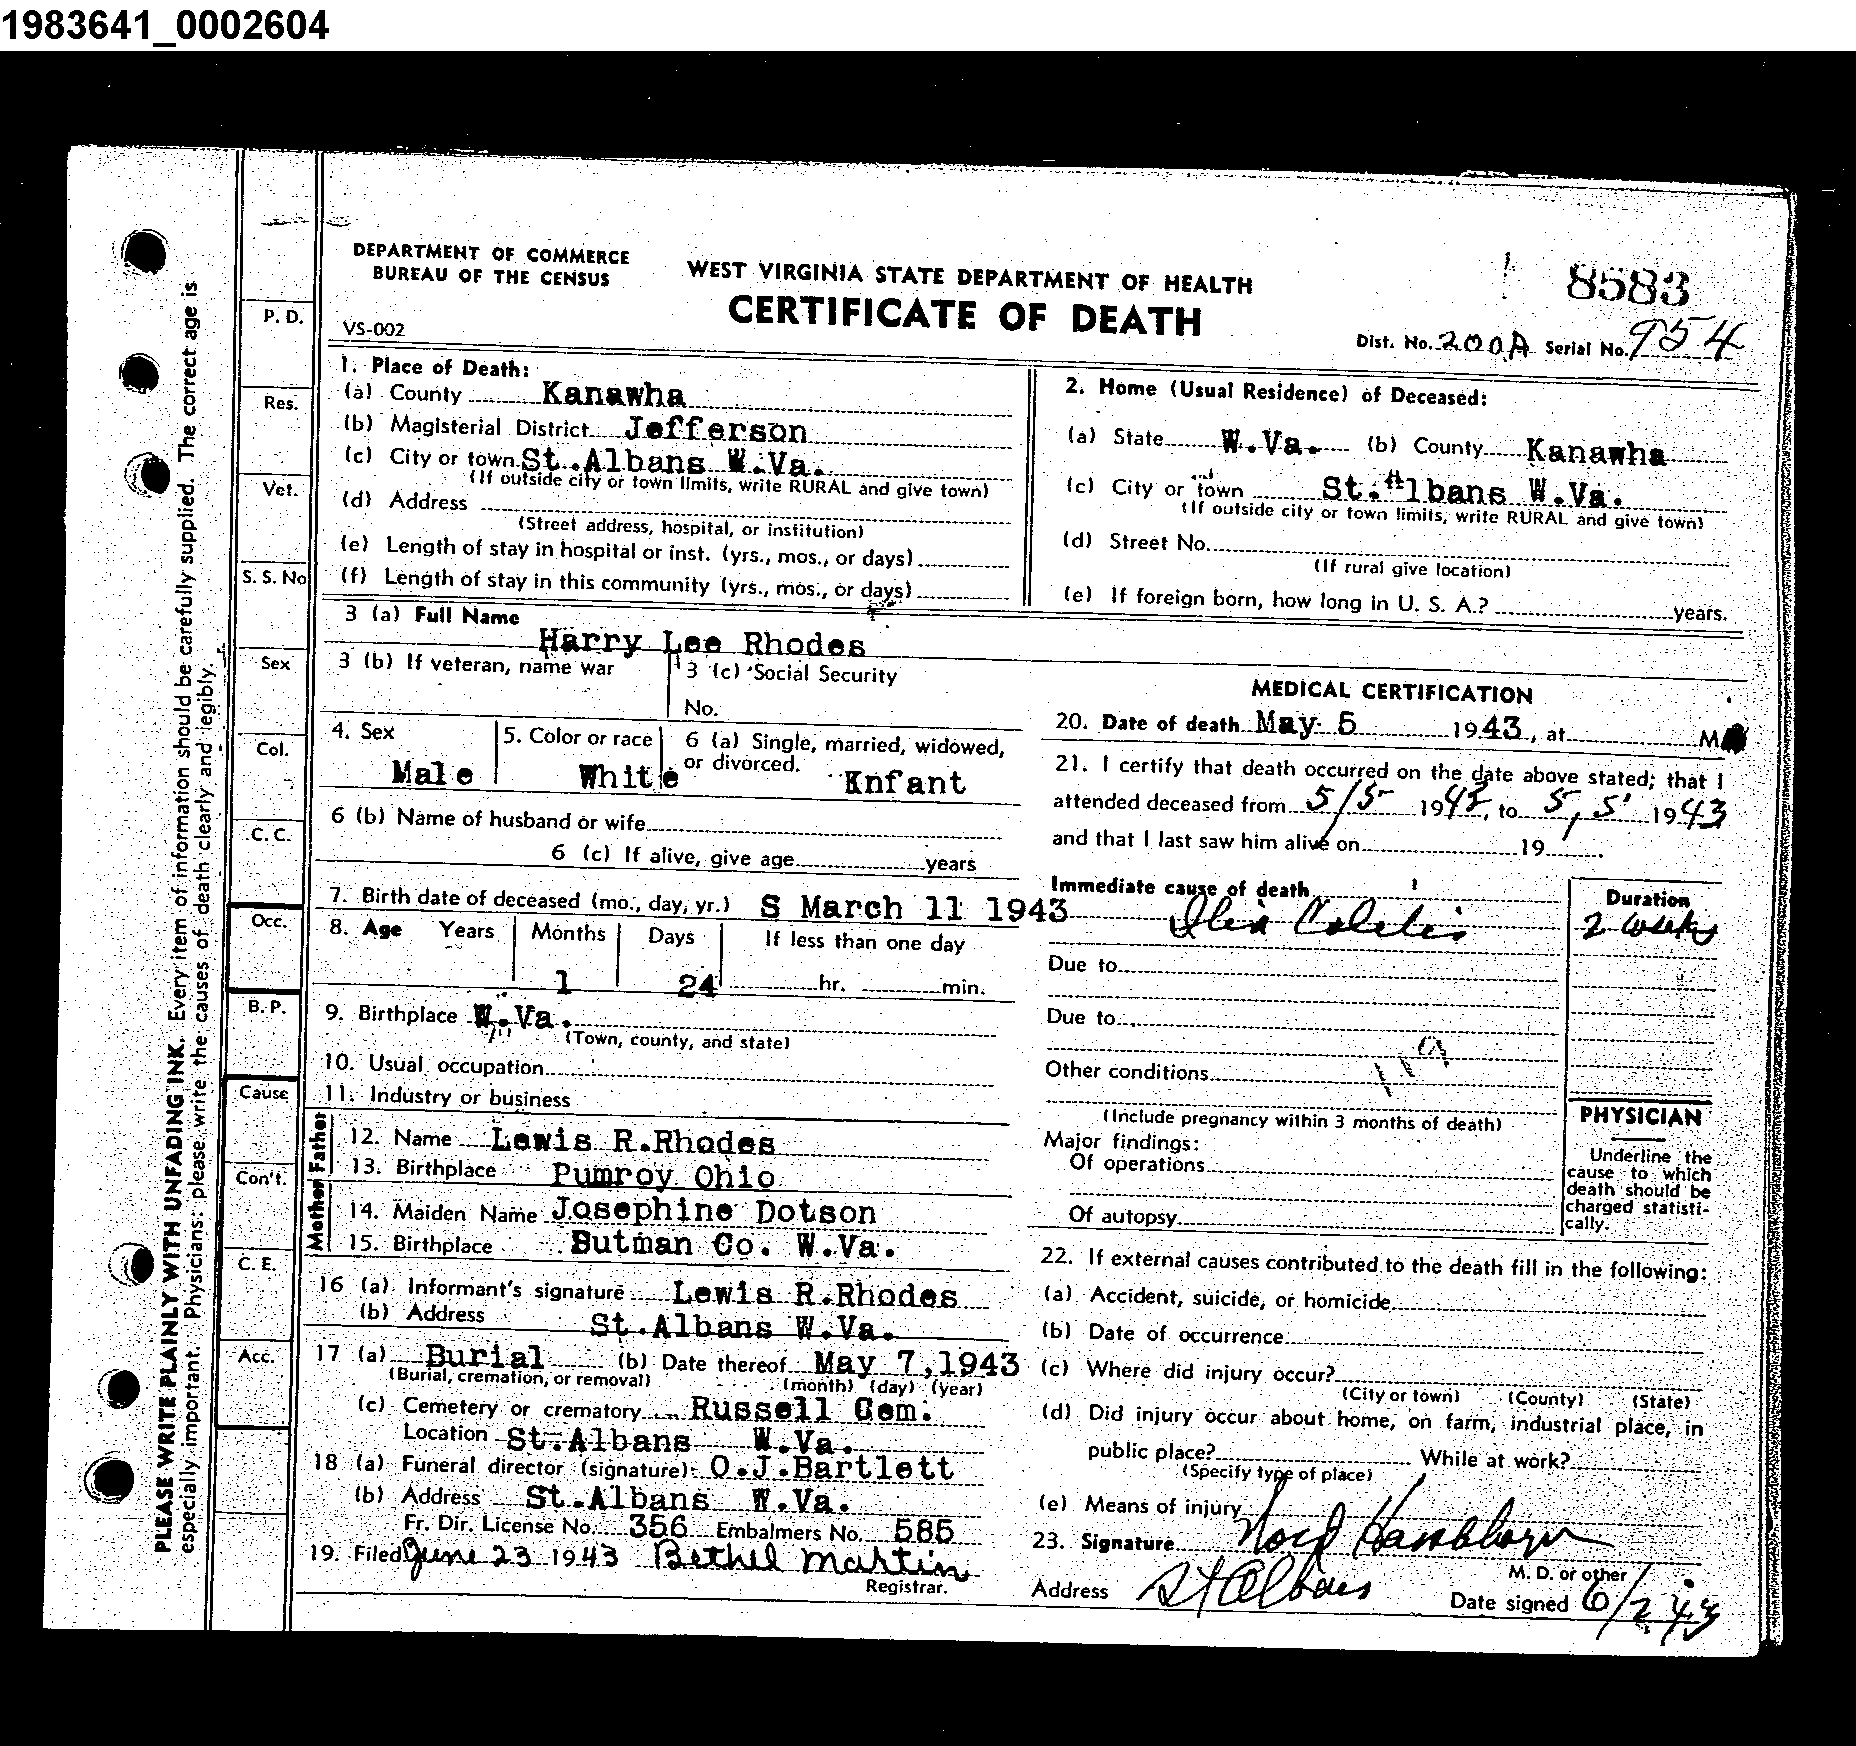 1983641_0002604
DEPARTMENT OF COMMERCE
BUREAU OF THE CENSUS
WEST VIRGINIA STATE DEPARTMENT OF HEALTH
CERTIFICATE OF DEATH
8583
VS-002
Dist. No. 200A Serial No. 954
1. Place of Death:
(a) County Kanawha
(b) Magisterial District Jefferson
(c) City or town St.Albans W.Va.
(If outside city or town limits, write RURAL and give town)
(d) Address
(Street address, hospital, or institution)
(e) Length of stay in hospital or inst. (yrs., mos., or days)
(f) Length of stay in this community (yrs., mos., or days)
2. Home (Usual Residence) of Deceased:
(a) State W.Va. (b) County Kanawha
(c) City or town St.Albans W.Va.
(If outside city or town limits, write RURAL and give town)
(d) Street No.
(If rural give location)
(e) If foreign born, how long in U. S. A.? years.
3 (a) Full Name
Harry Lee Rhodes
3 (b) If veteran, name war
3 (c) Social Security
No.
4. Sex
Male
5. Color or race
White
6 (a) Single, married, widowed,
or divorced. Knfant
6 (b) Name of husband or wife
6 (c) If alive, give age years
7. Birth date of deceased (mo., day, yr.) S March 11 1943
8. Age Years Months Days If less than one day
1 24 hr. min.
9. Birthplace W.Va.
(Town, county, and state)
10. Usual occupation
11. Industry or business
Father
12. Name Lewis R.Rhodes
13. Birthplace Pumroy Ohio
Mother
14. Maiden Name Josephine Dotson
15. Birthplace Butman Co. W.Va.
16 (a) Informant's signature Lewis R.Rhodes
(b) Address St.Albans W.Va.
17 (a) Burial (b) Date thereof May 7,1943
(Burial, cremation, or removal) (month) (day) (year)
(c) Cemetery or crematory Russell Cem.
Location St.Albans W.Va.
18 (a) Funeral director (signature) O.J.Bartlett
(b) Address St.Albans W.Va.
Fr. Dir. License No. 356 Embalmers No. 585
19. Filed June 23 1943 Bethel Martin
Registrar.
MEDICAL CERTIFICATION
20. Date of death May 5 1943, at M
21. I certify that death occurred on the date above stated; that I
attended deceased from 5/5 1943, to 5, 5 1943
and that I last saw him alive on 19
Immediate cause of death
Ileo Colitis
Duration
2 weeks
Due to
Due to
119
Other conditions
(Include pregnancy within 3 months of death)
Major findings:
Of operations
Of autopsy
PHYSICIAN
Underline the
cause to which
death should be
charged statisti-
cally.
22. If external causes contributed to the death fill in the following:
(a) Accident, suicide, or homicide
(b) Date of occurrence
(c) Where did injury occur?
(City or town) (County) (State)
(d) Did injury occur about home, on farm, industrial place, in
public place? While at work?
(Specify type of place)
(e) Means of injury
23. Signature
M. D. or other
Address St Albans Date signed 6/2 43
P. D.
Res.
Vet.
S. S. No
Sex
Col.
C. C.
Occ.
B. P.
Cause
Con't.
C. E.
Acc.
PLEASE WRITE PLAINLY WITH UNFADING INK. Every item of information should be carefully supplied. The correct age is
especially important. Physicians: please write the causes of death clearly and legibly.